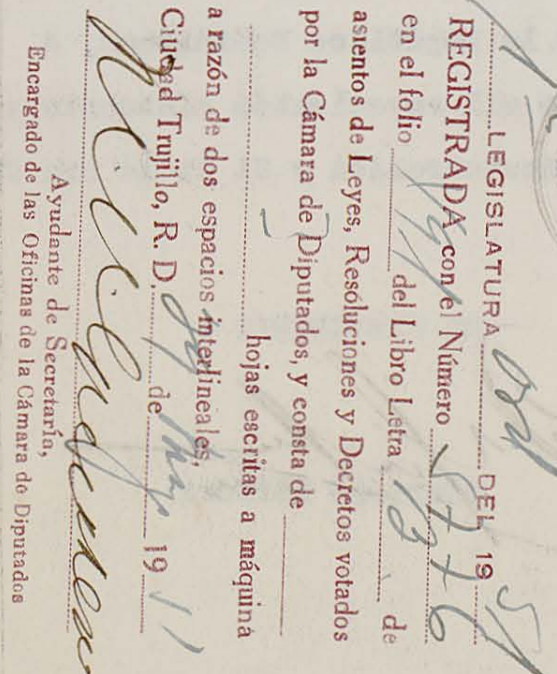 LEGISLATURA DEL 19 51
REGISTRADA con el Número 5776
en el folio del Libro Letra B, de
asientos de Leyes, Resoluciones y Decretos votados
por la Cámara de Diputados, y consta de
hojas escritas a máquina
a razón de dos espacios interlineales.
Ciudad Trujillo, R. D. de 19
Ayudante de Secretaría,
Encargado de las Oficinas de la Cámara de Diputados